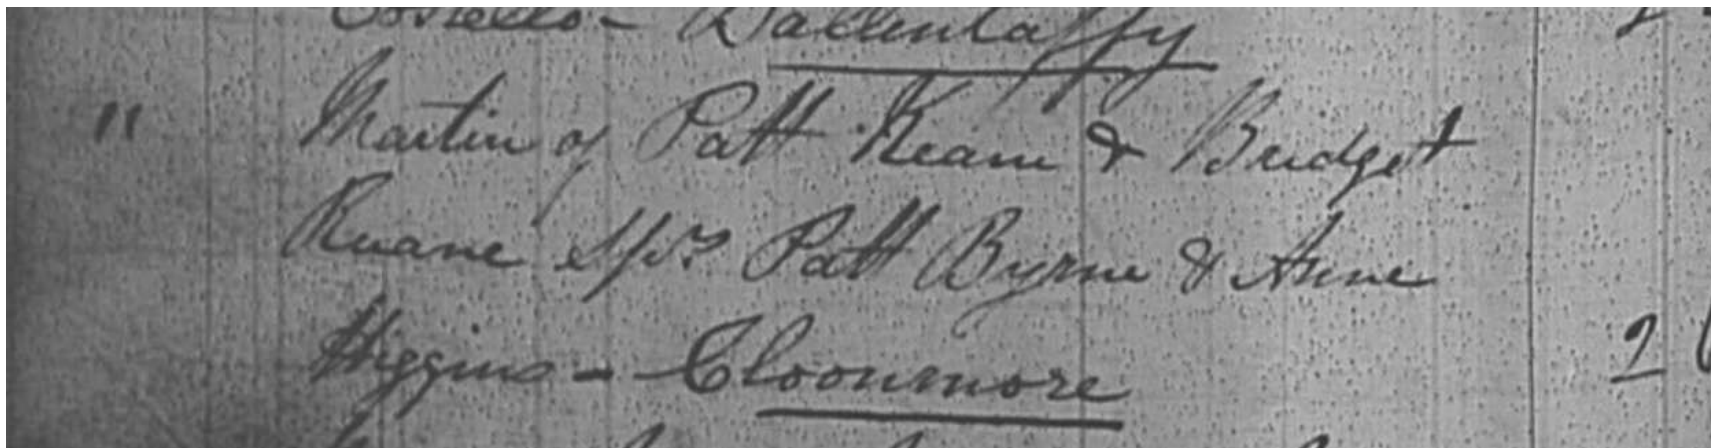 Costello - Ballintaffy
" Martin of Patt Keane & Bridget
Ruane Sprs Patt Byrne & Anne
Higgins - Cloonmore 2